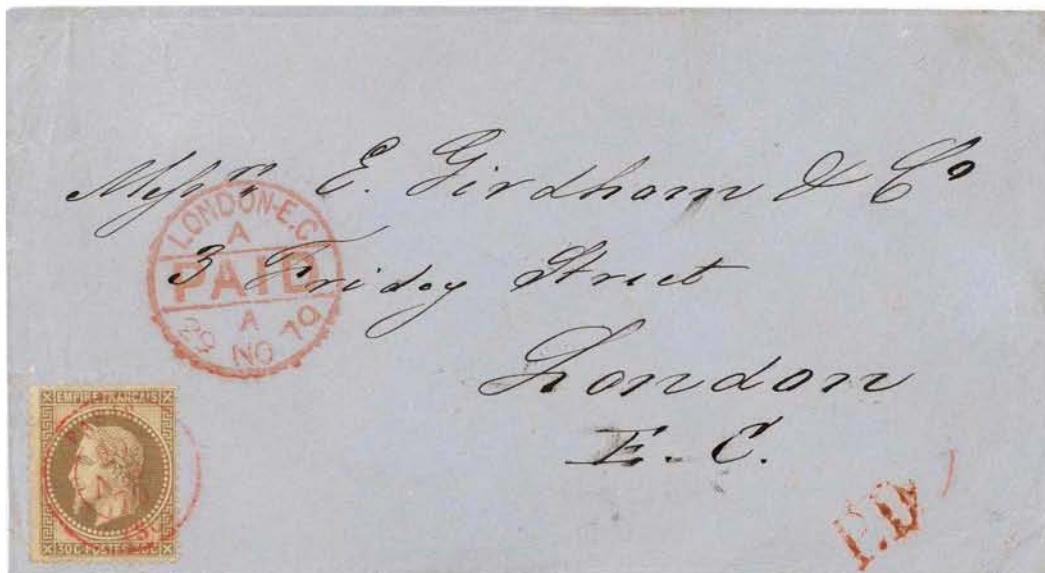 Messrs E. Girdham & Co
3 Friday Street
London
E.C.
LONDON-E.C
A
PAID
A
29 NO 70
EMPIRE FRANÇAIS
30C POSTES 30C
P.D.